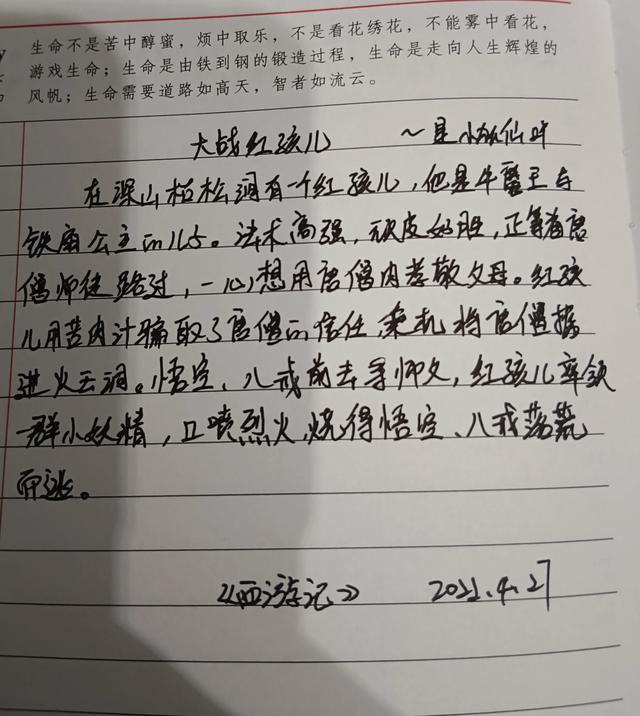 生命不是苦中醇蜜，烦中取乐，不是看花绣花，不能雾中看花，
游戏生命；生命是由铁到钢的锻造过程，生命是走向人生辉煌的
风帆；生命需要道路如高天，智者如流云。
大战红孩儿 ～是小妖仙叶
在深山枯松涧有一个红孩儿，他是牛魔王与
铁扇公主的儿子。法术高强，顽皮好胜，正等着唐
僧师徒路过，一心想用唐僧肉孝敬父母。红孩
儿用苦肉计骗取了唐僧的信任，乘机将唐僧掳
进火云洞。悟空、八戒前去寻师父，红孩儿率领
一群小妖精，口喷烈火，烧得悟空、八戒落荒
而逃。
《西游记》 2022.4.27